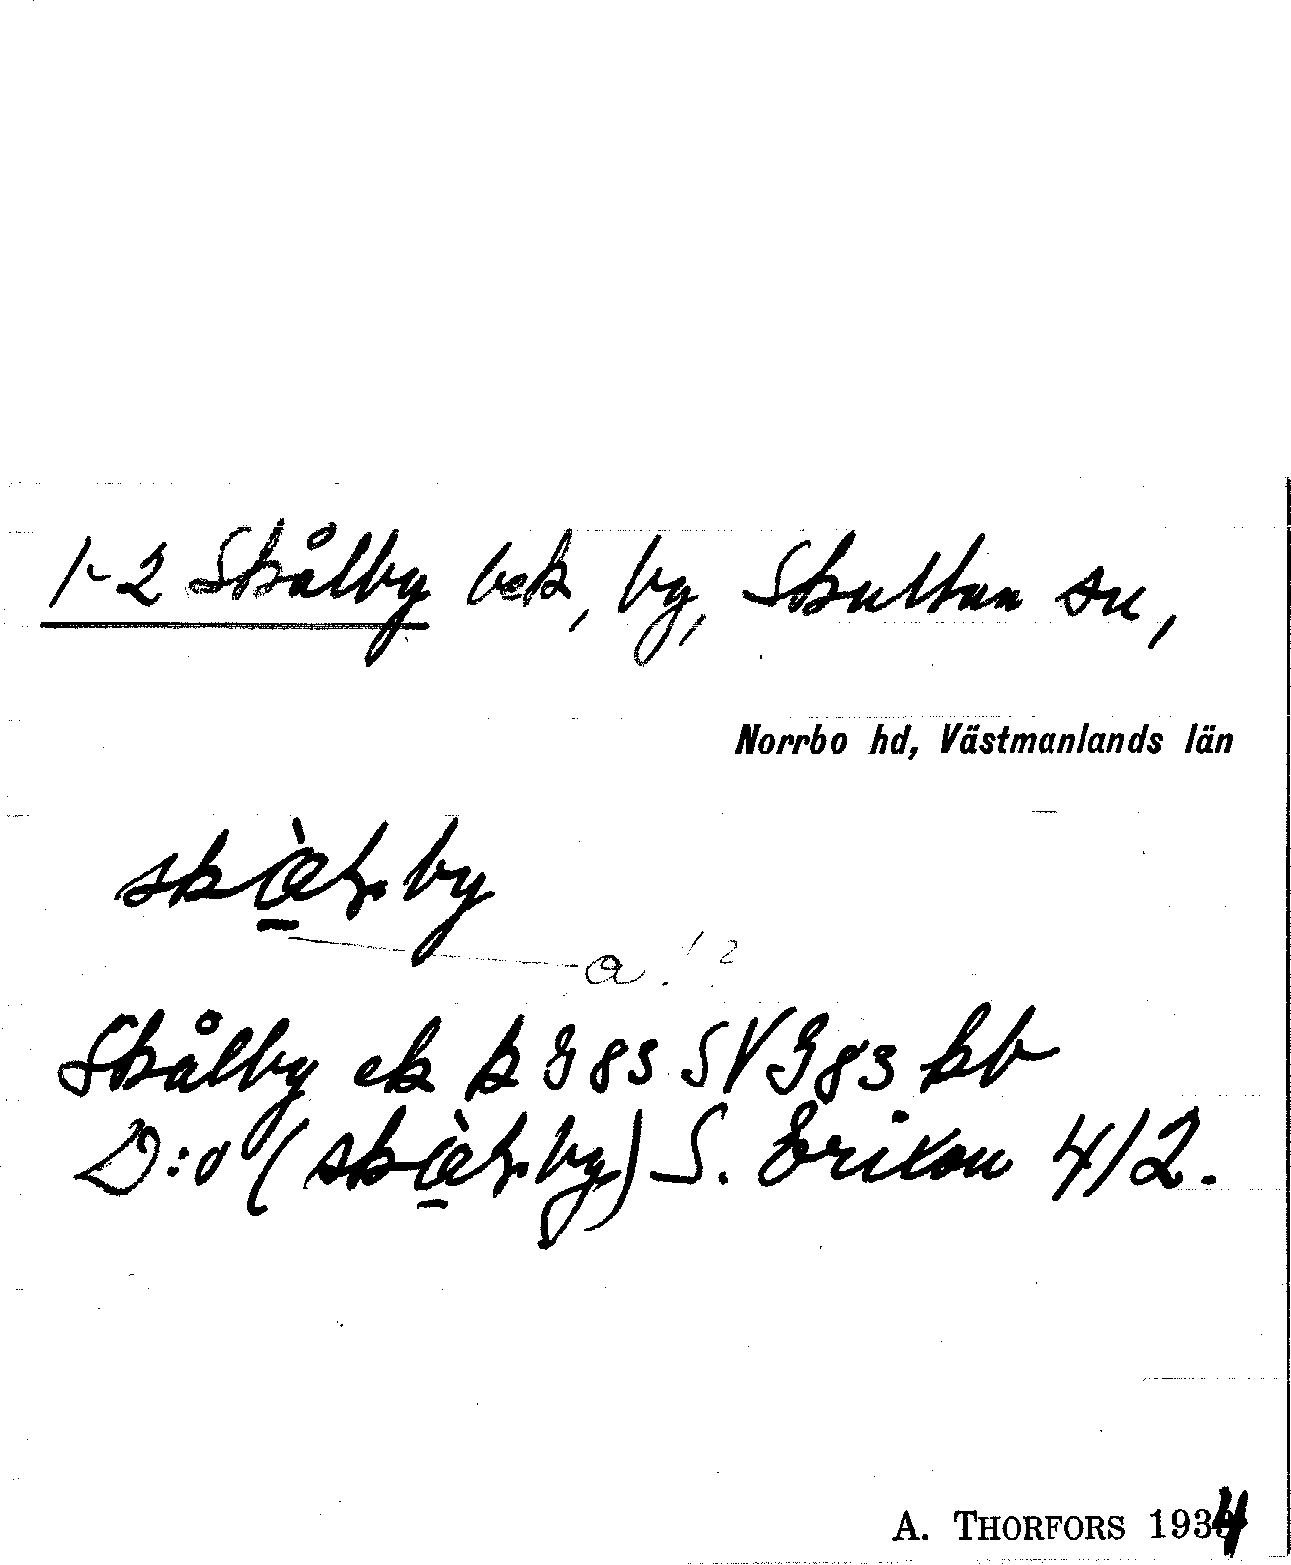 1-2 Skålby bek, by, Skultuna sn,
Norrbo hd, Västmanlands län
by
a. 1 2
Skålby ek k E83 SV G83 kb
D:o ( by) S. Erikson 4/2.
A. THORFORS 1934